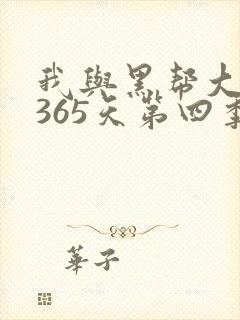 我與黑帮大
365天第四季
華子